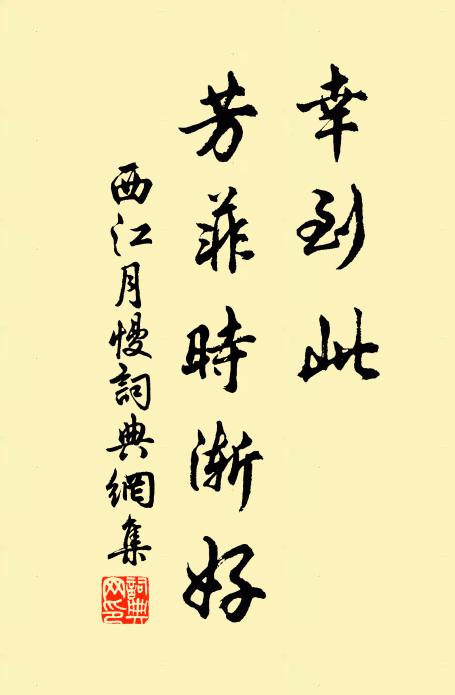 幸到此
芳菲時漸好
西江月慢詞典網集
詞典
网印